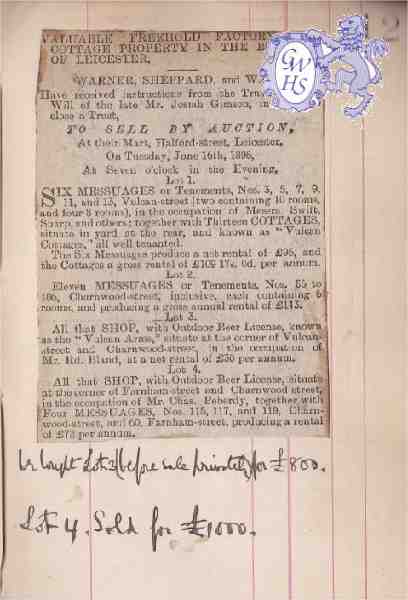 VALUABLE FREEHOLD FACTORY
COTTAGE PROPERTY IN THE B
OF LEICESTER.
WARNER, SHEPPARD, and WA
Have received instructions from the
Will of the late Mr. Josiah Gimson, in
close a Trust,
TO SELL BY AUCTION,
At their Mart, Halford-street, Leicester,
On Tuesday, June 16th, 1896,
At Seven o'clock in the Evening,
Lot 1.
SIX MESSUAGES or Tenements, Nos. 3, 5, 7, 9,
11, and 13, Vulcan-street (two containing 10 rooms,
and four 8 rooms), in the occupation of Messrs. Swift,
Sharp, and others; together with Thirteen COTTAGES,
situate in yard at the rear, and known as "Vulcan
Cottages," all well tenanted.
The Six Messuages produce a net rental of £95, and
the Cottages a gross rental of 6d. per annum.
Lot 2.
Eleven MESSUAGES or Tenements, Nos. to
Charnwood-street, inclusive, each containing 6
rooms, and producing a gross annual rental of £113.
Lot 3.
All that SHOP, with Outdoor Beer License, known
as the "Vulcan Arms," situate at the corner of Vulcan-
street and Charnwood-street, in the occupation of
Mr. Rd. Bland, at a net rental of £30 per annum.
Lot 4.
All that SHOP, with Outdoor Beer License, situate
at the corner of Farnham-street and Charnwood street,
in the occupation of Mr. Chas. Peberdy, together with
Four MESSUAGES, Nos. 115, 117, and 119, Charn-
wood-street, and 60, Farnham-street, producing a rental
of £73 per annum.
Wright Lot 3 (before sale privately) for £800.
Lot 4. Sold for £1000.
GWHS